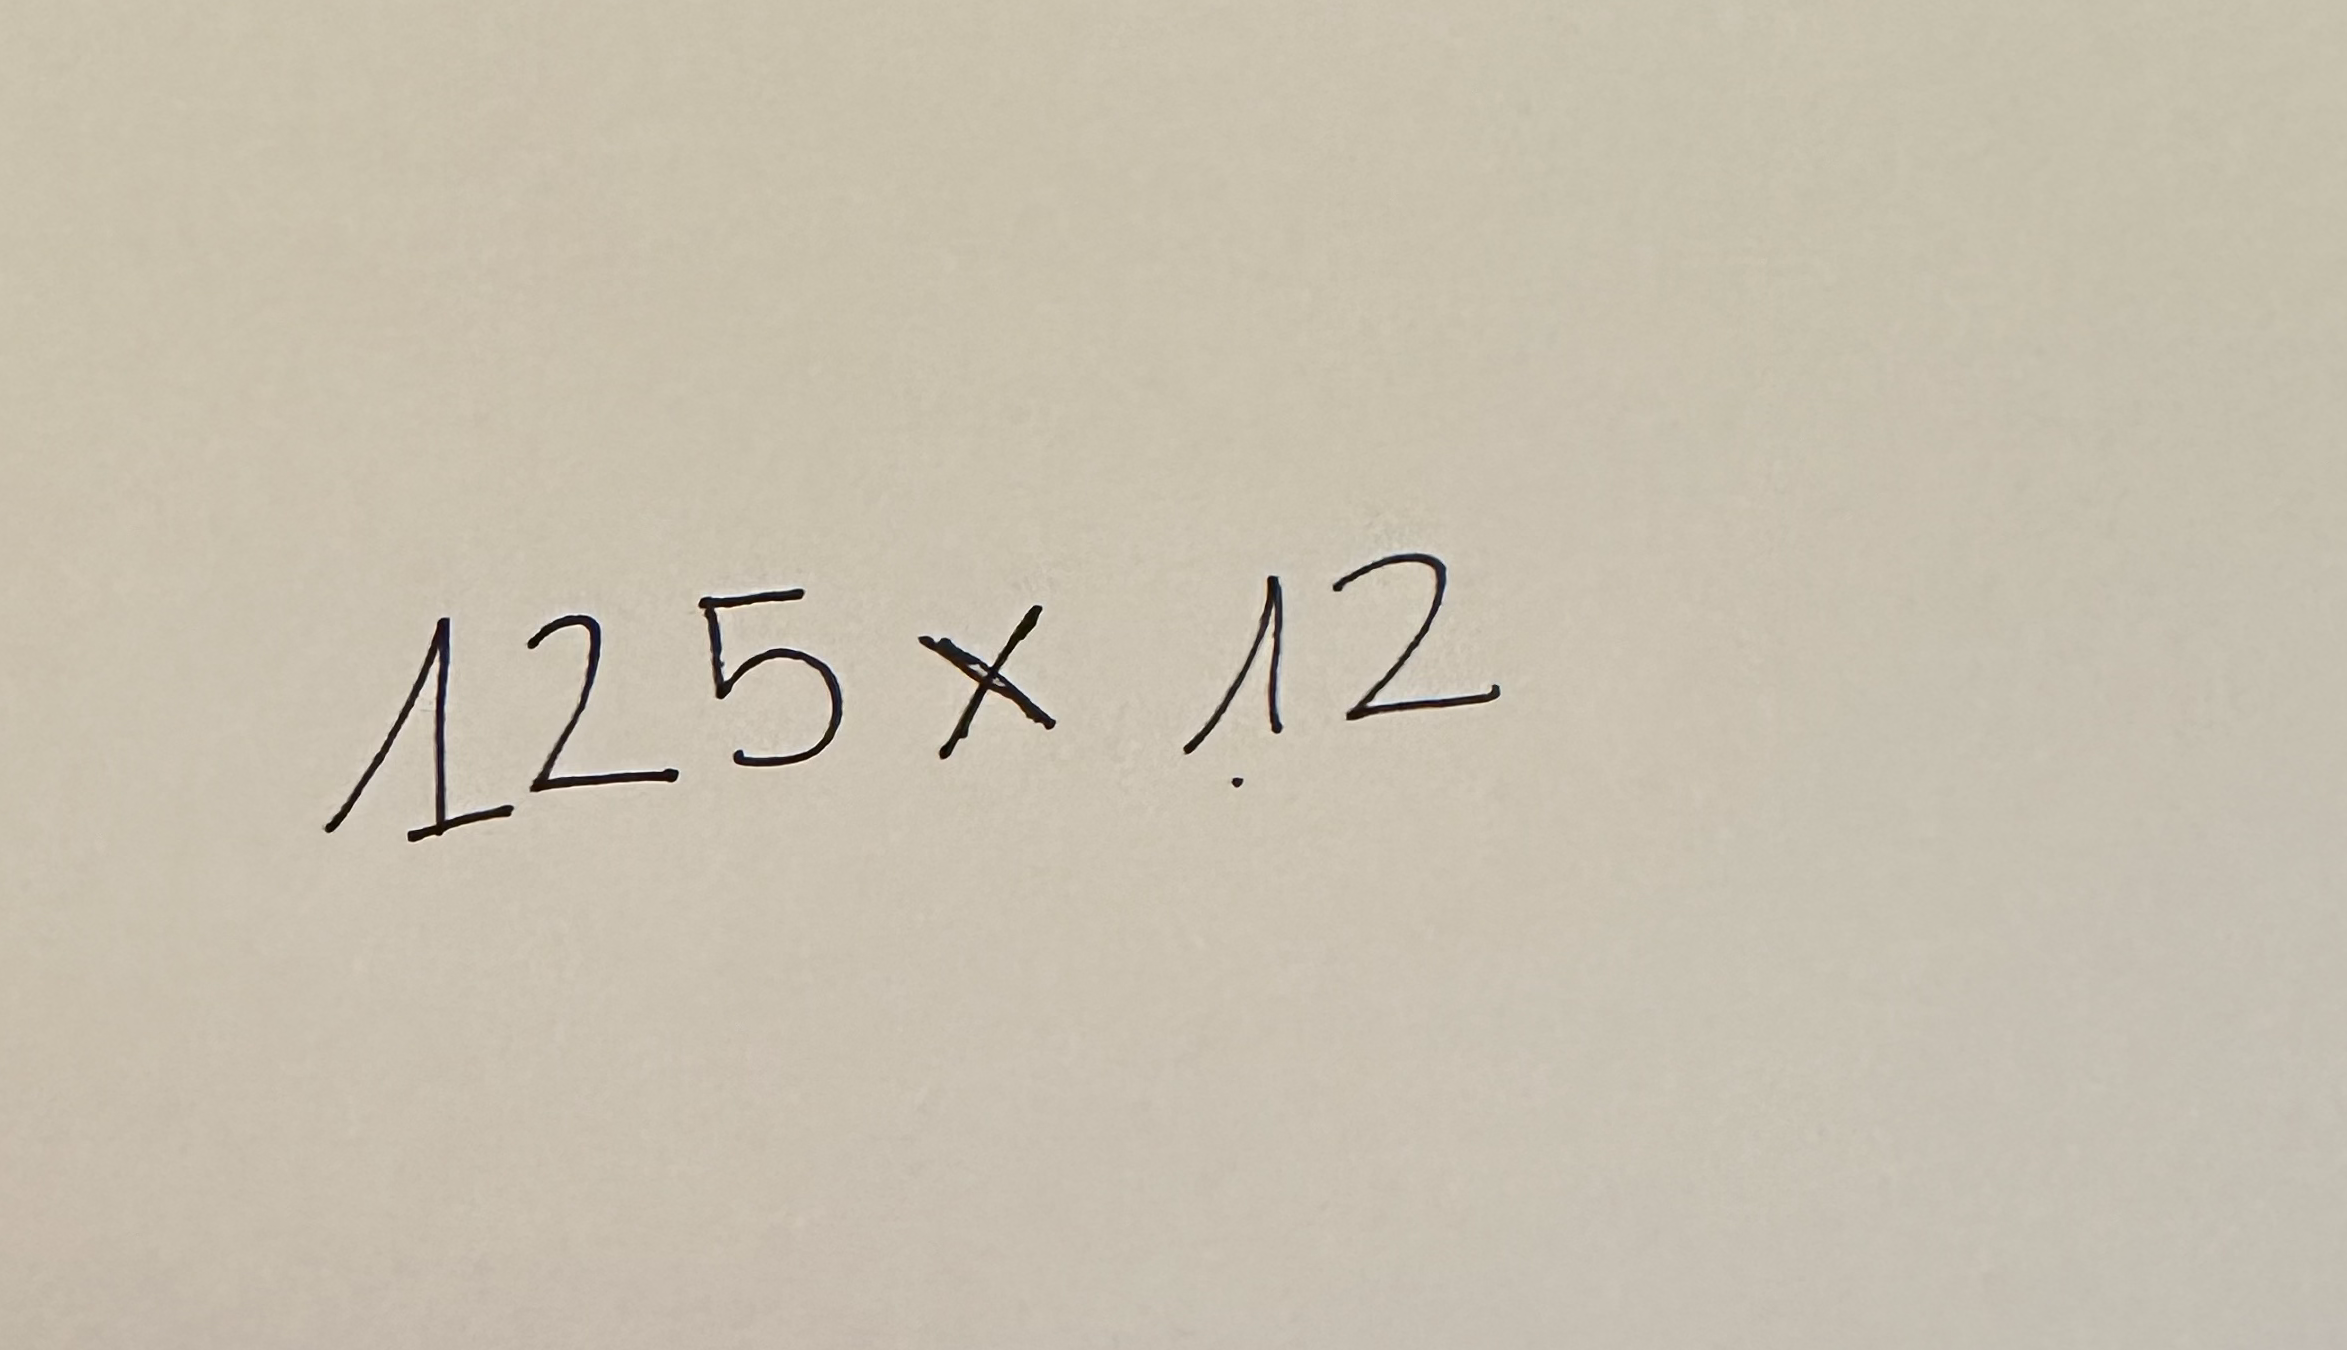 125 x 12